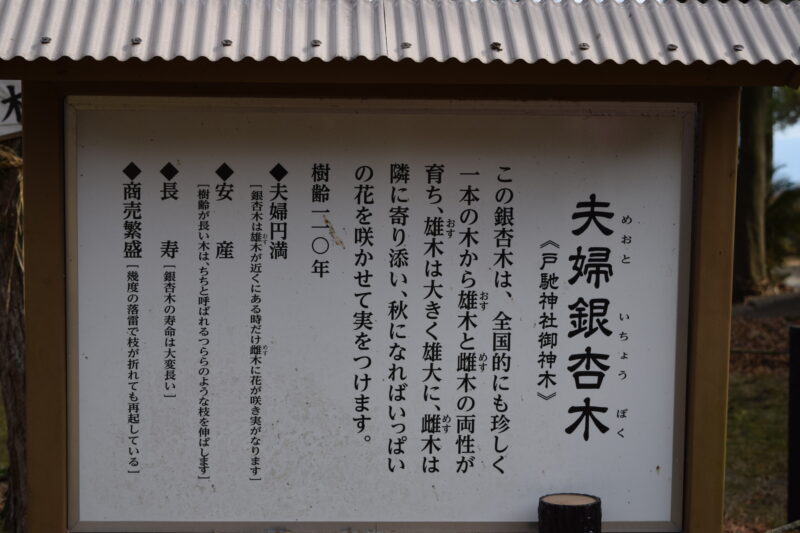 夫婦銀杏木
めおと いちょう ぼく
《戸馳神社御神木》
この銀杏木は、全国的にも珍しく
一本の木から雄木と雌木の両性が
おす めす
育ち、雄木は大きく雄大に、雌木は
おす めす
隣に寄り添い、秋になればいっぱい
の花を咲かせて実をつけます。
樹齢一一〇年
◆夫婦円満
[銀杏木は雄木が近くにある時だけ雌木に花が咲き実がなります]
おす めす
◆安 産
[樹齢が長い木は、ちちと呼ばれるつららのような枝を伸ばします]
◆長 寿[銀杏木の寿命は大変長い]
◆商売繁盛[幾度の落雷で枝が折れても再起している]